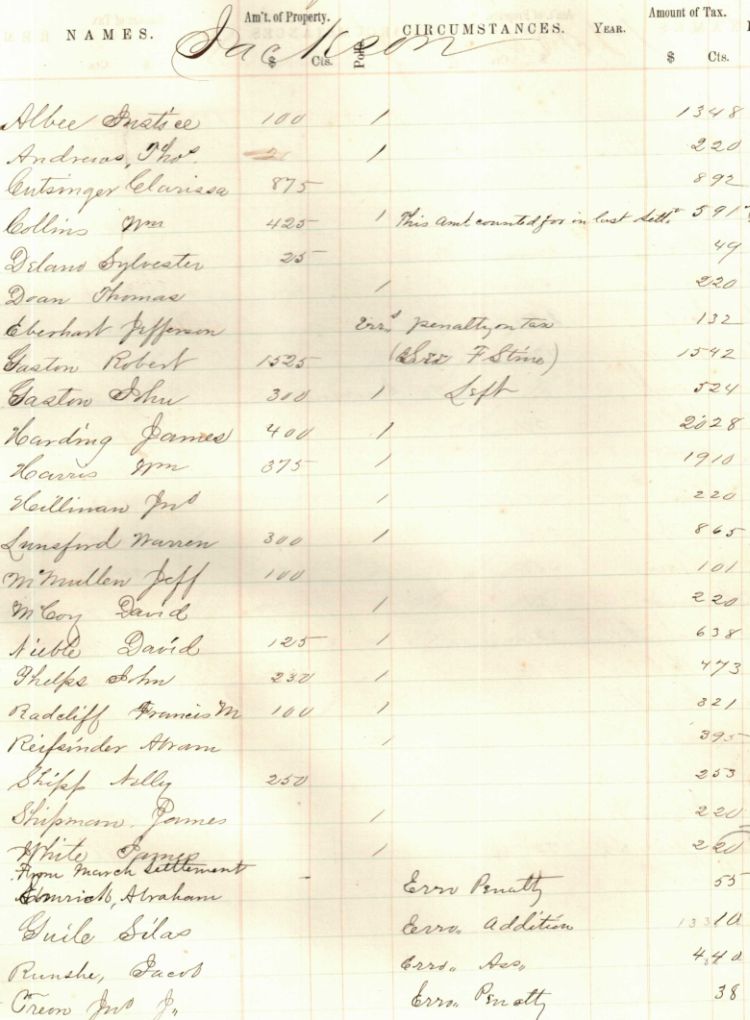 NAMES. Am't. of Property. $ Cts. Poll CIRCUMSTANCES. YEAR. Amount of Tax. $ Cts.
Jackson
Albee Justice 100 1 1348
Andrews, Thos. 1 220
Cutsinger Clarissa 875 892
Collins Wm 425 1 This amt counted for in last Settt 591
Deland Sylvester 25 49
Doan Thomas 1 220
Eberhart Jefferson Errs penalty on tax 132
Gaston Robert 1525 ( F Stine) 1542
Gaston John 300 1 Left 524
Harding James 400 1 2028
Harris Wm 375 1 1910
Hillman Jno 1 220
Lunsford Warren 300 1 865
McMullen Jeff 100 101
McCoy David 1 220
Nieble David 125 1 638
Phelps John 230 1 473
Radcliff Francis M 100 1 321
Reifsinder Abram 1 395
Shipp Nelly 250 253
Shipman. James 1 220
White James 1 220
From March Settlement
Abraham Erro Penalty 55
Guile Silas Erro. Addition 1310
Runshe, Jacob Erro. Ass. 4,40
Creon Jno Jr. Erro. Penalty 38